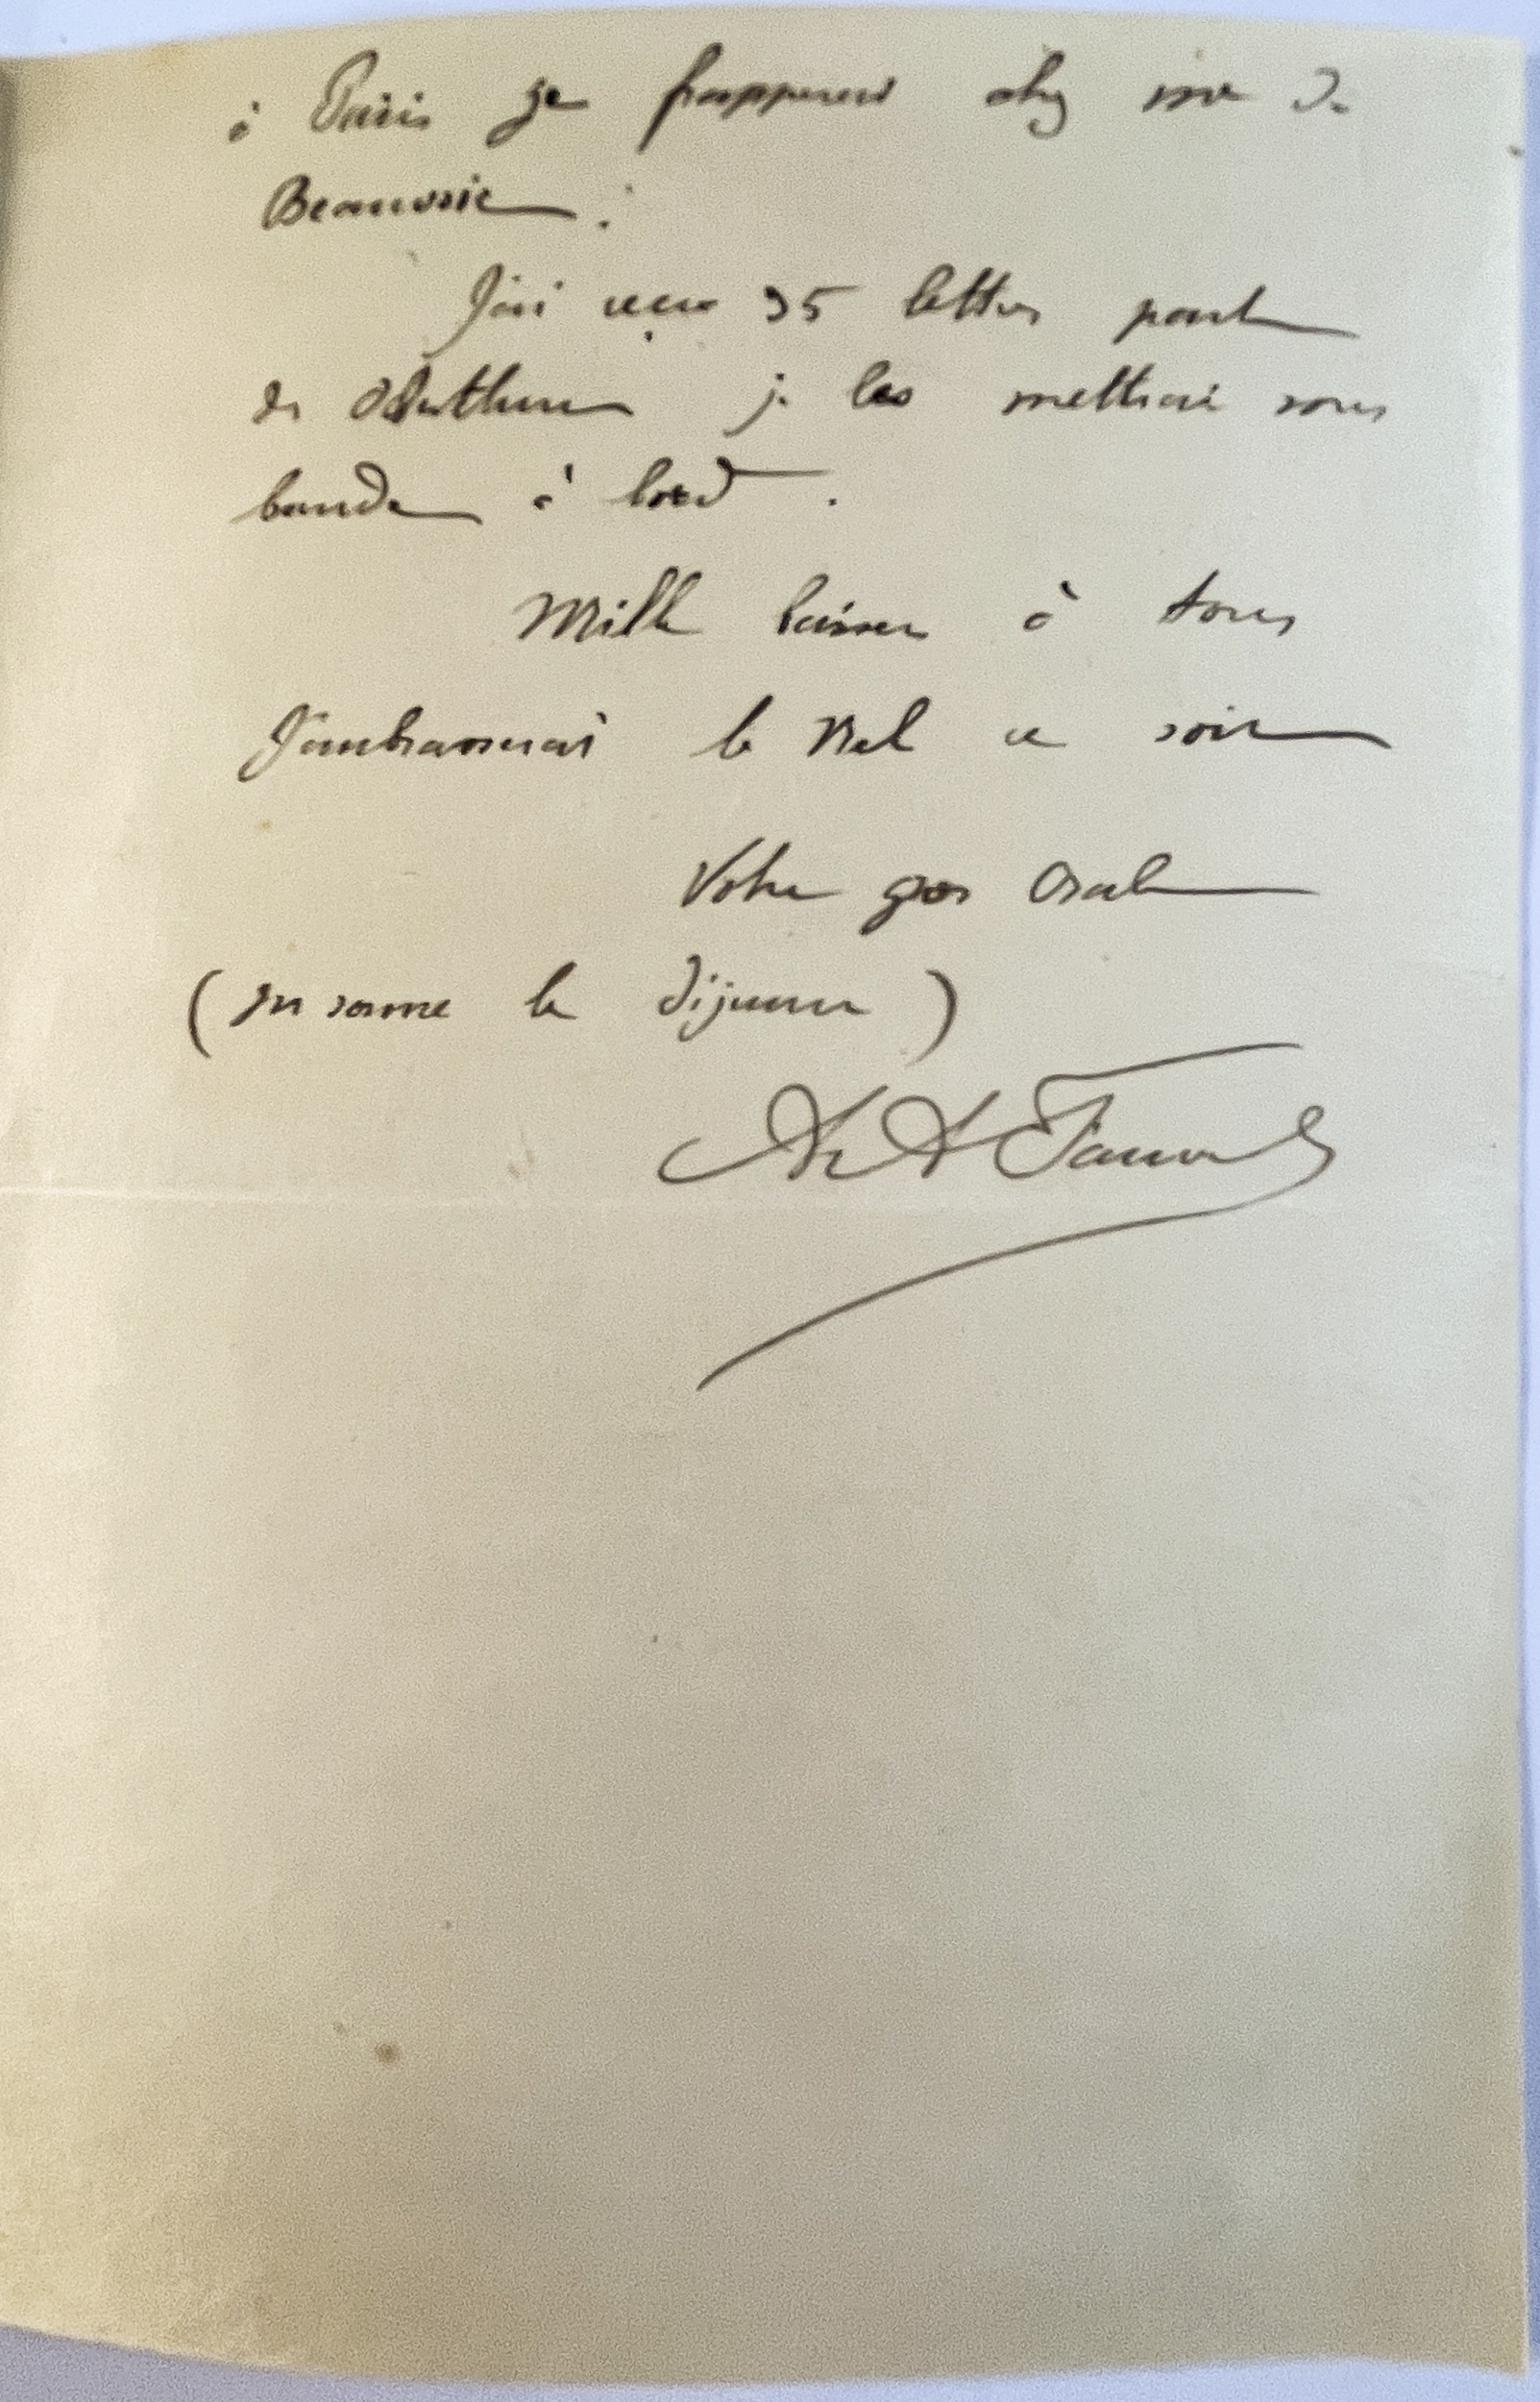 à Paris je frapperai chez me de
Beauvoir.
J'ai reçu 35 lettres
je les mettrai sous
bande à bord.
Mille baisers à tous
J'embrasserai le ce soir
Votre gros
(on sonne le déjeuner)